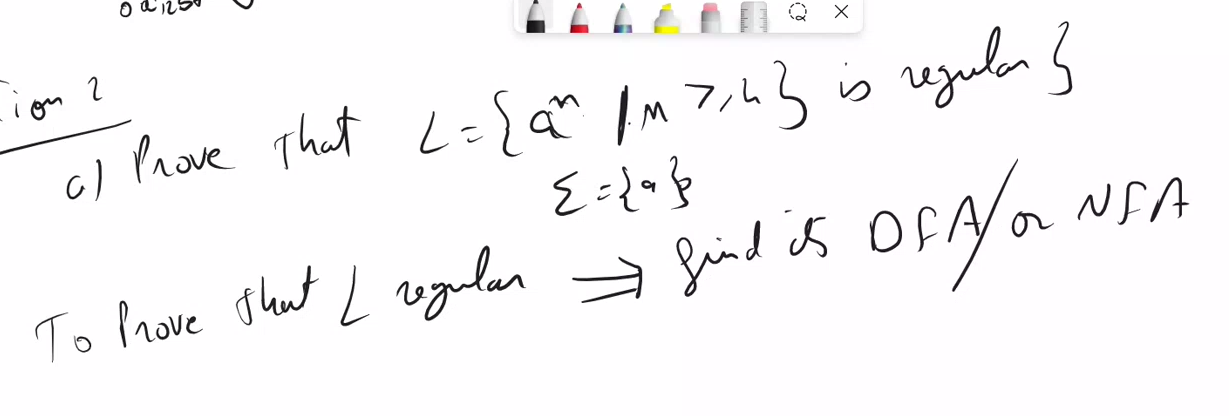 ion 2
a) Prove that L = {aⁿ / n ≥ 4} is regular }
Σ = {a}
To Prove that L regular ⇒ find its DFA / or NFA